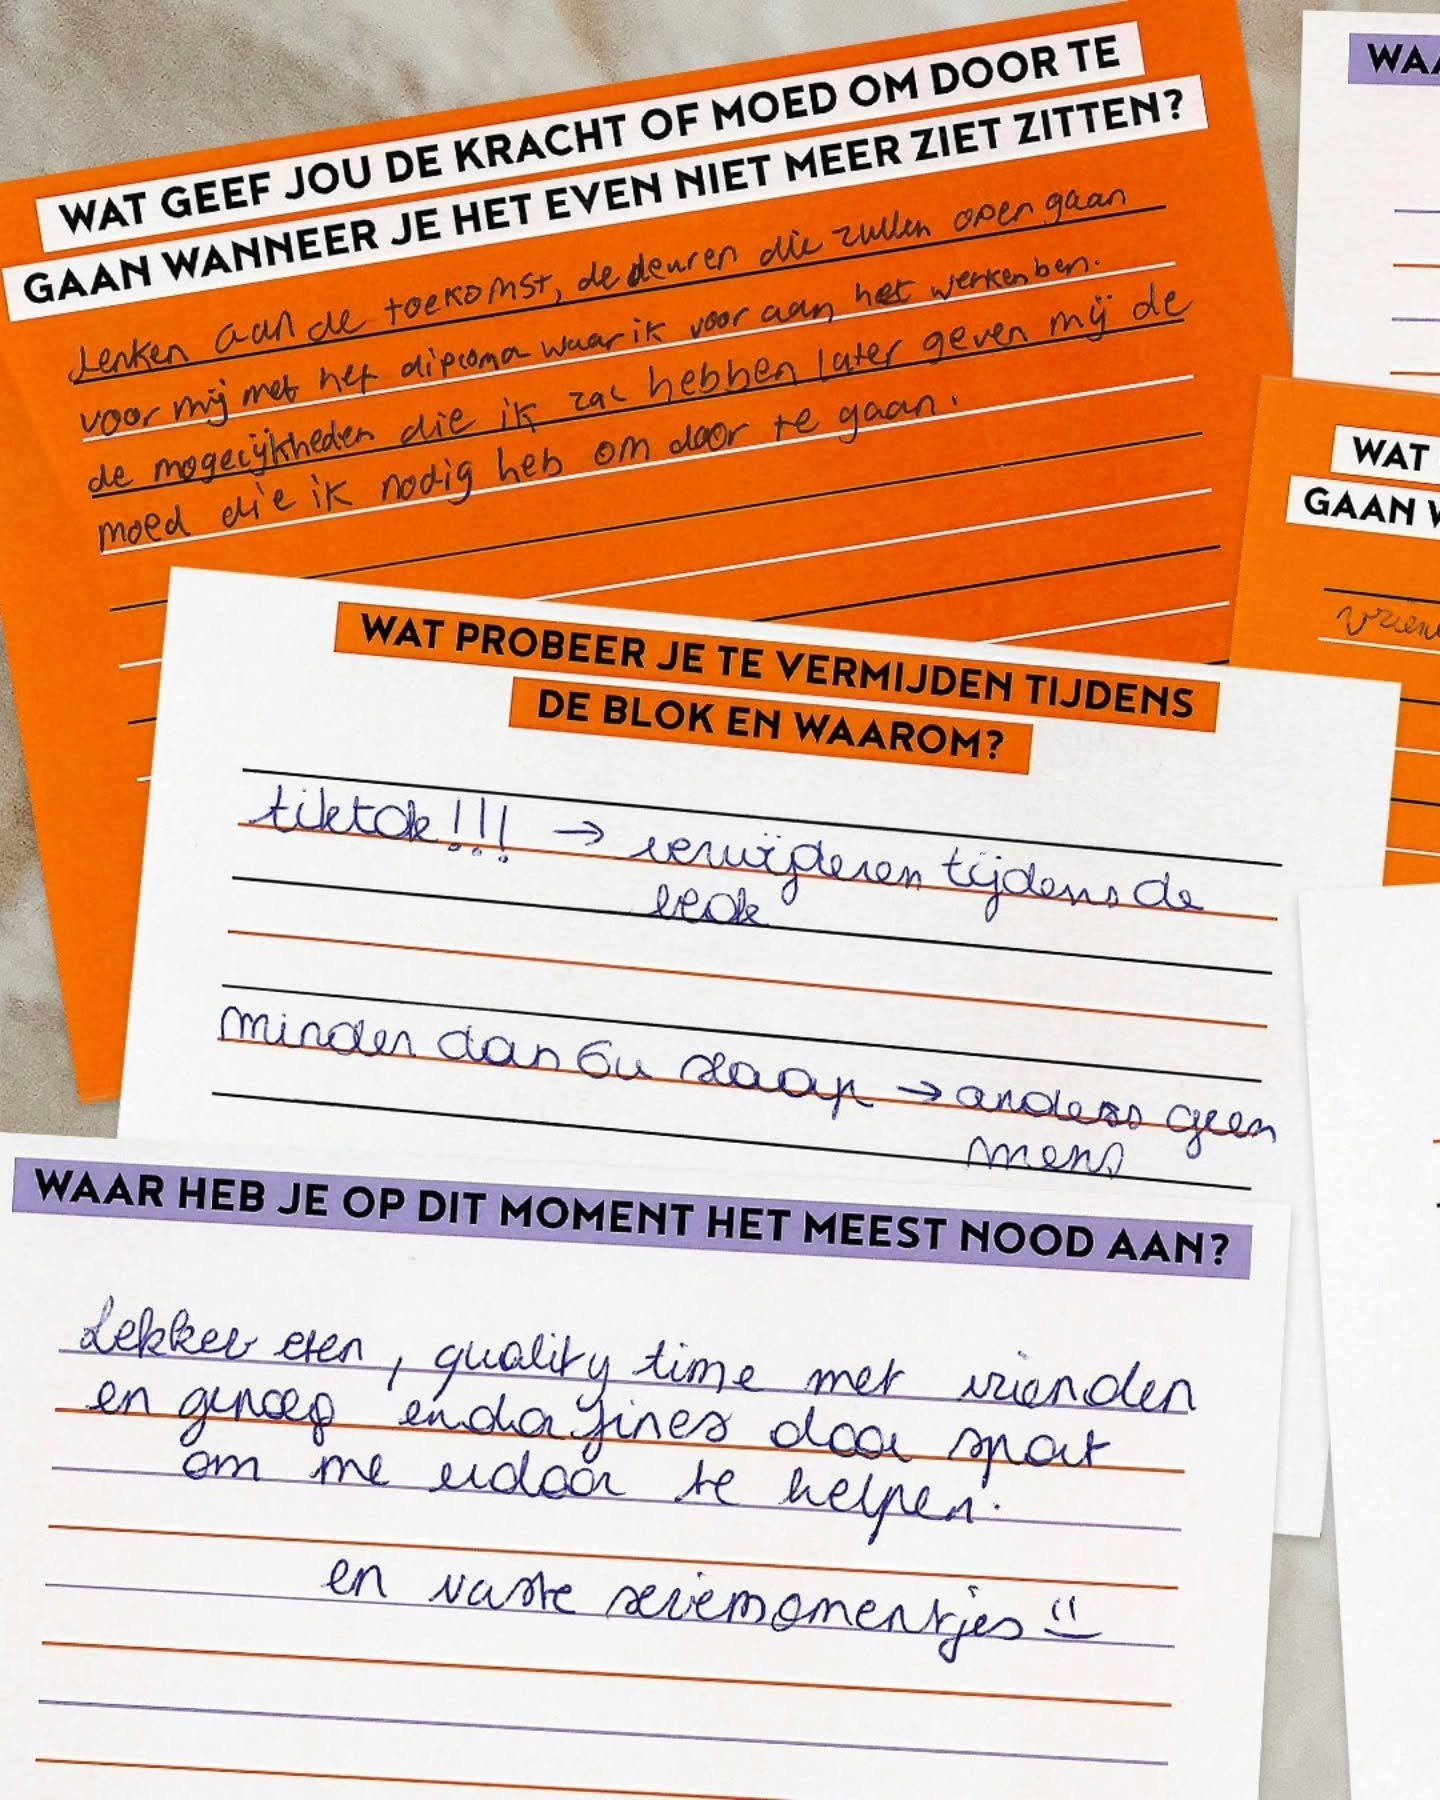 WAT GEEF JOU DE KRACHT OF MOED OM DOOR TE
GAAN WANNEER JE HET EVEN NIET MEER ZIET ZITTEN?
denken aan de toekomst, de deuren die zullen open gaan
voor mij met het diploma waar ik voor aan het werken ben.
de mogelijkheden die ik zal hebben later geven mij de
moed die ik nodig heb om door te gaan.
WAT PROBEER JE TE VERMIJDEN TIJDENS
DE BLOK EN WAAROM?
tiktok!!! → verwijderen tijdens de
blok
minder dan 6u slaap → anders geen
mens
WAAR HEB JE OP DIT MOMENT HET MEEST NOOD AAN?
Lekker eten, quality time met vrienden
en genoeg endorfines door sport
om me erdoor te helpen.
en vaste seriemomentjes
WAA
WAT
GAAN W
vrien